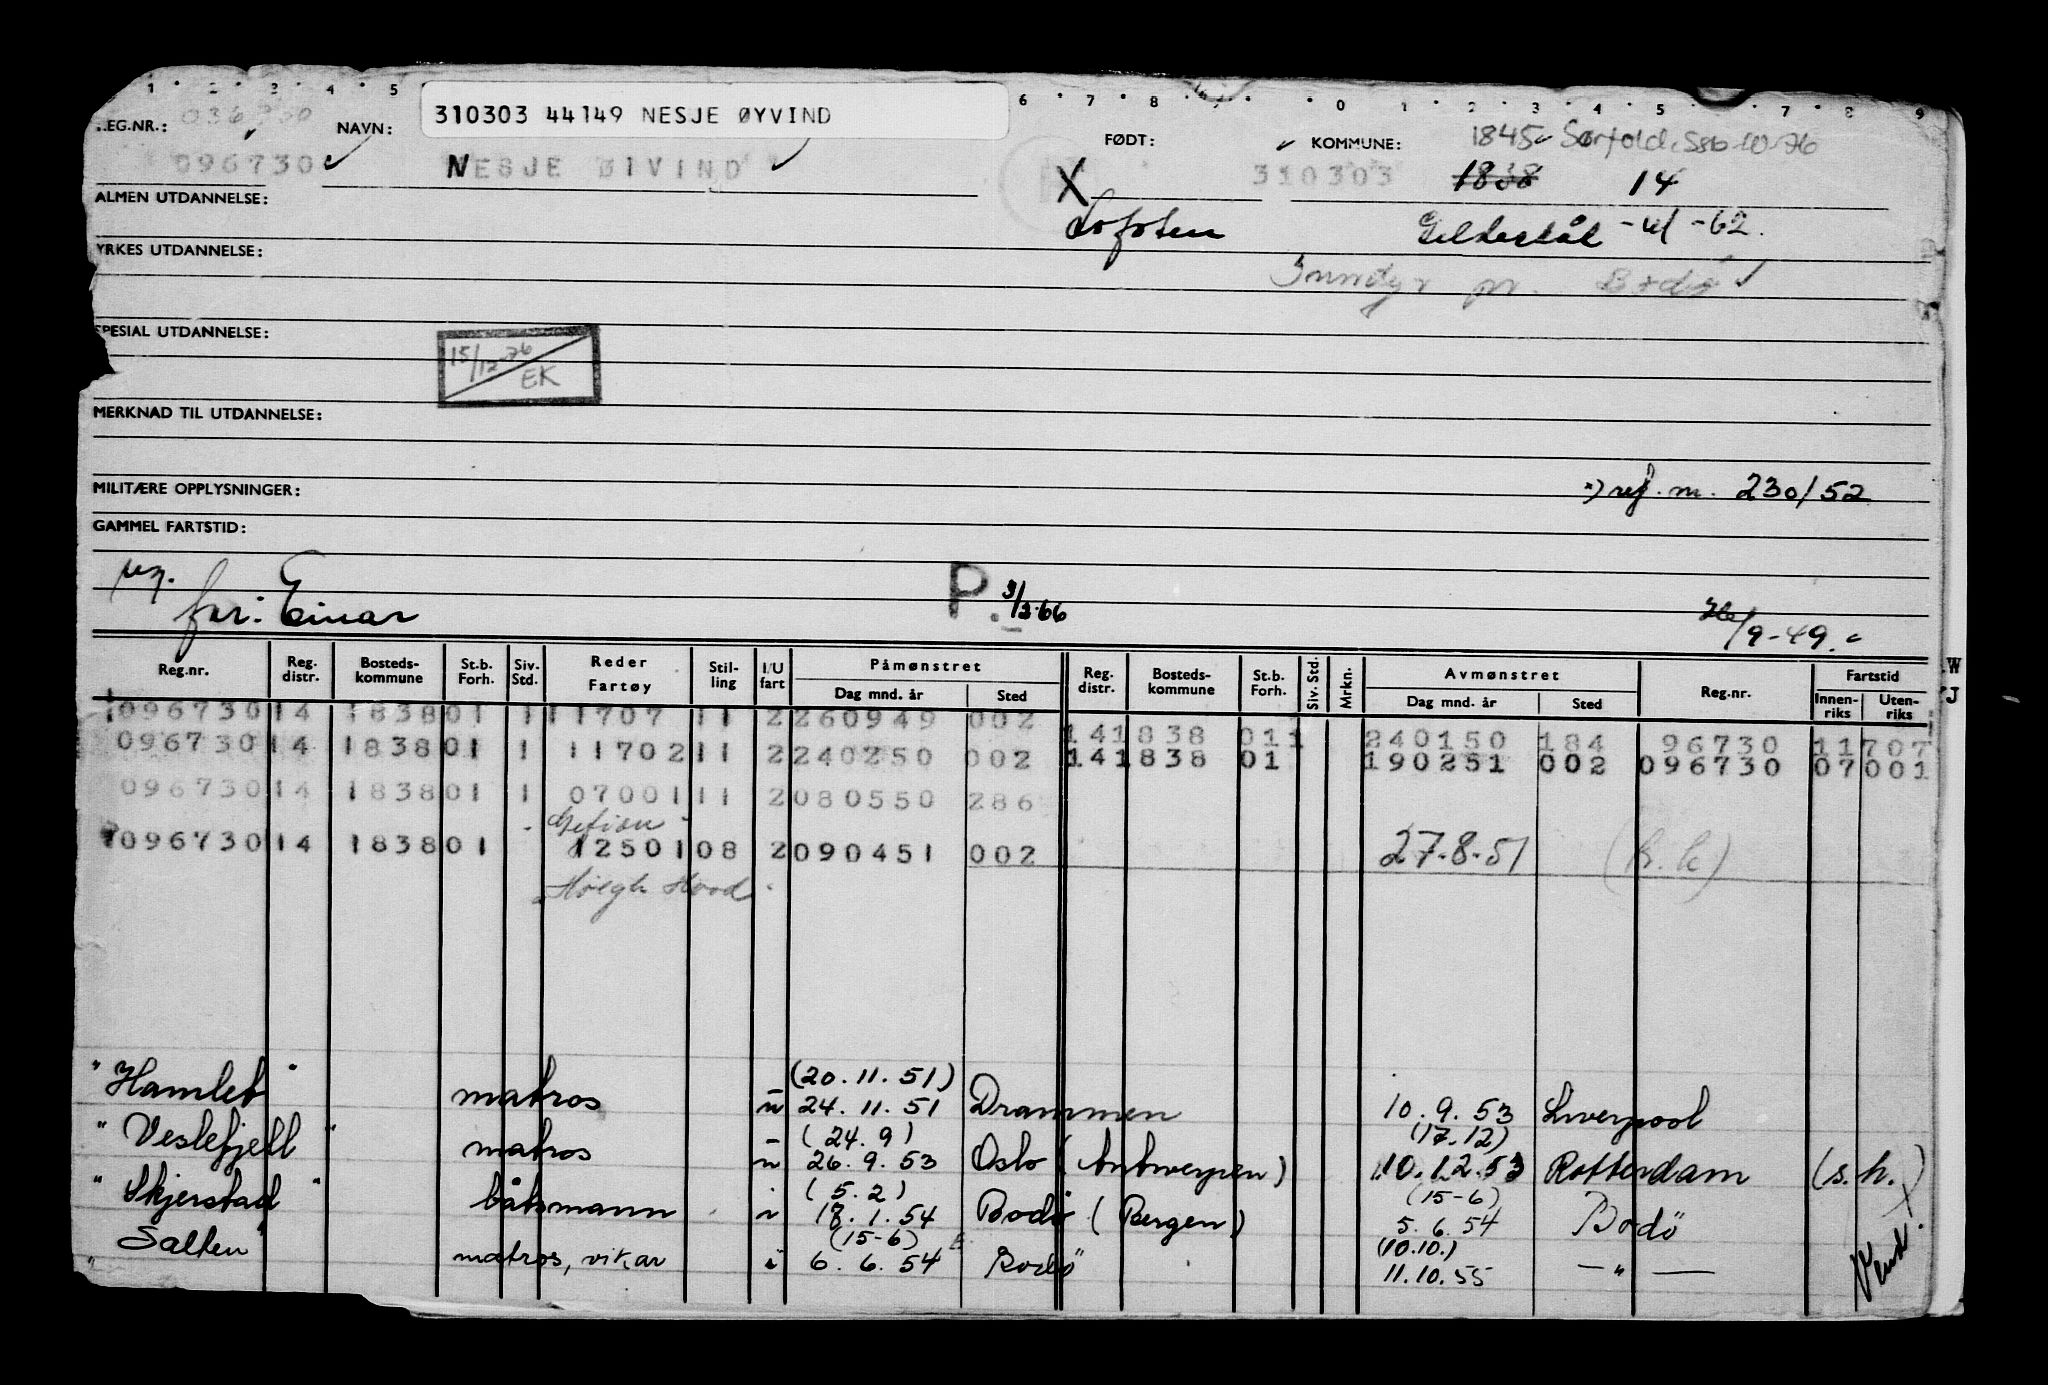 1 2 3 4 5 6 7 8 0 1 2 3 4 5 7 8 9
310303 44149 NESJE ØYVIND
REG.NR.: 036730 NAVN: FØDT: KOMMUNE: 1845 Sørfold. SSB 10-76
096730 NESJE ØIVIND X 310303 1838 14
ALMEN UTDANNELSE: Lofoten Gildeskål - 4/ -62.
YRKES UTDANNELSE: Inndyr pr. Bodø
SPESIAL UTDANNELSE:
15/12-76 EK
MERKNAD TIL UTDANNELSE:
MILITÆRE OPPLYSNINGER: *) ref. nr. 230/52
GAMMEL FARTSTID:
P. 3/2-66
far: Einar /9-49.
Reg.nr. Reg. distr. Bosteds-kommune St.b. Forh. Siv-Std. Reder Fartøy Stil-ling I/U fart Påmønstret Dag mnd. år Sted Reg. distr. Bosteds-kommune St.b. Forh. Siv. Std. Mrkn. Avmønstret Dag mnd. år Sted Reg.nr. Fartstid Innen-riks Uten-riks
W
J
096730 14 1838 01 1 11707 11 2 260949 002 14 1838 01 1 240150 184 96730 11 707
096730 14 1838 01 1 11702 11 2 240250 002 14 1838 01 190251 002 096730 07 001
096730 14 1838 01 1 07001 11 2 080550 286
Gefion
096730 14 1838 01 12501 08 2 090451 002 27.8.51 (h.k)
Höegh Hood
"Hamlet" matros u (20.11.51) 24.11.51 Drammen 10.9.53 Liverpool
"Veslefjell" matros u (24.9) 26.9.53 Oslo (Antwerpen) (17.12) 10.12.53 Rotterdam (s.h.)
"Skjerstad" båtsmann i (5.2) 18.1.54 Bodö (Bergen) (15-6) 5.6.54 Bodö
"Salten" matros, vikar i (15-6) 6.6.54 Bodö (10.10.) 11.10.55 — " —
Vend.